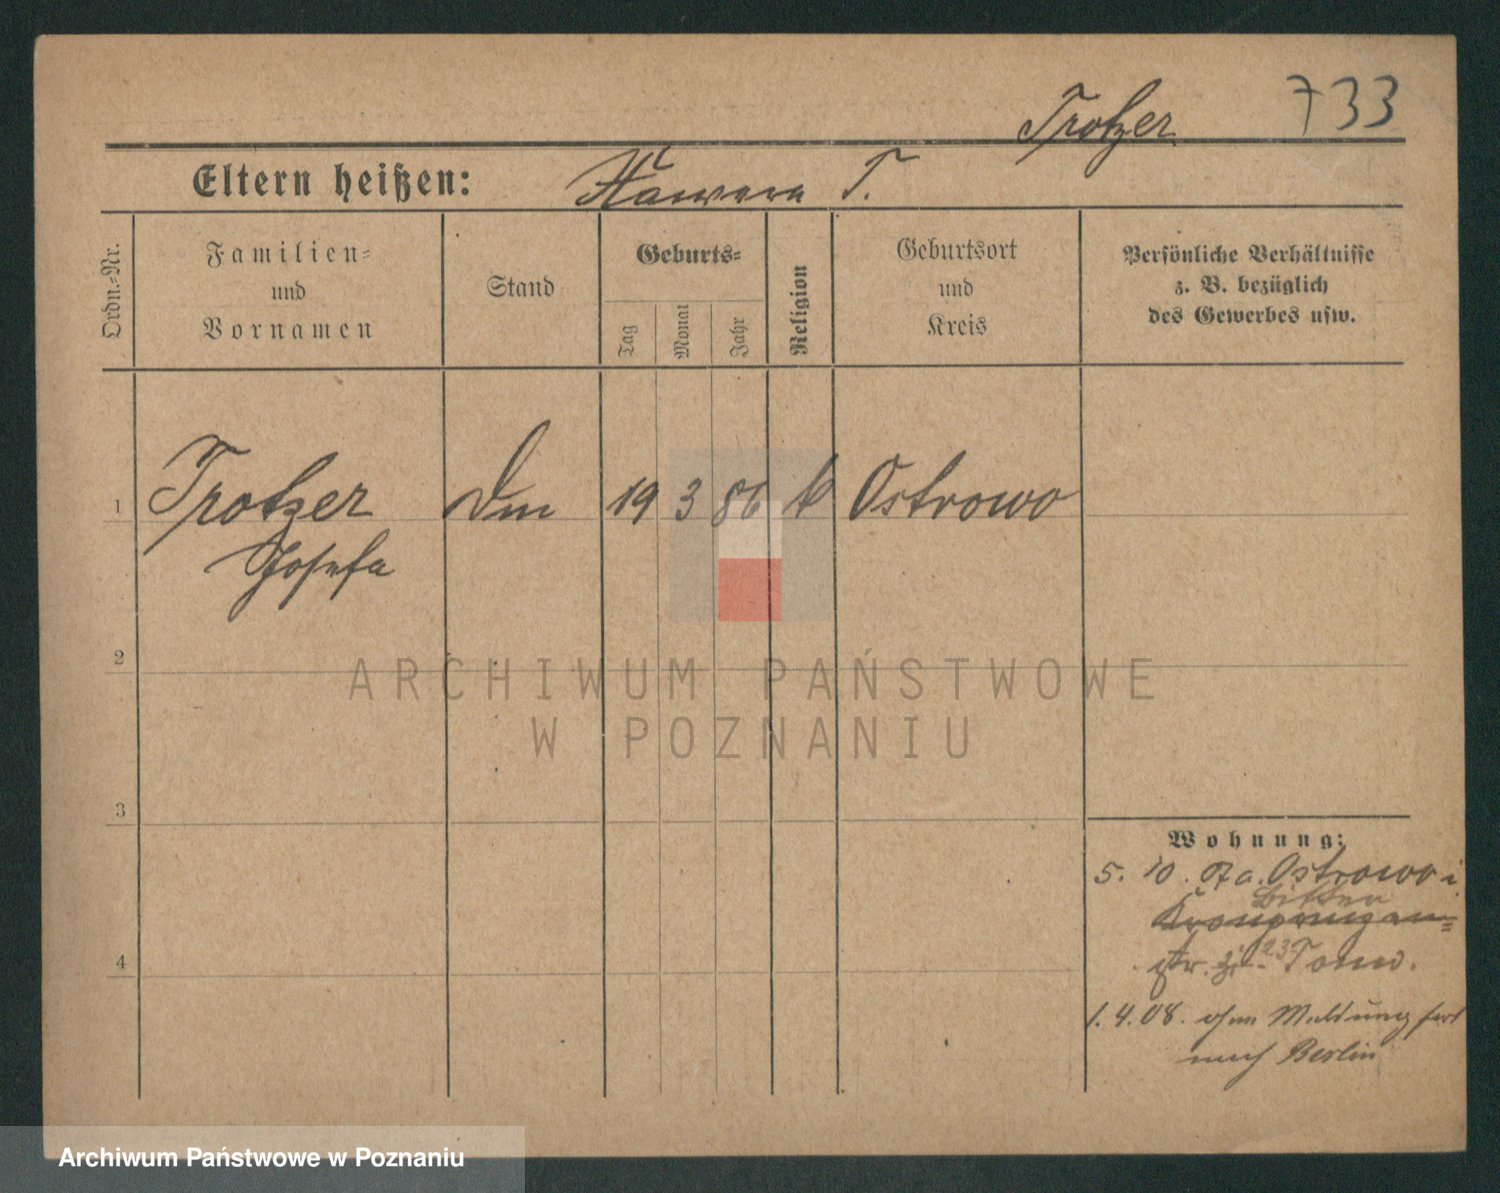 733
Trotzer
Eltern heißen: T.
Ordn.-Nr.
Familien-
und
Vornamen
Stand
Geburts-
Tag
Monat
Jahr
Religion
Geburtsort
und
Kreis
Persönliche Verhältnisse
z. B. bezüglich
des Gewerbes usw.
1 Trotzer 19 3 86 k Ostrowo
Josefa
2
ARCHIWUM PAŃSTWOWE
W POZNANIU
3
Wohnung:
5. 10. 07 a. Ostrowo i
Bitter
Kronprinzen=
str. 23
4
1. 4. 08. ohne Meldung fort
nach Berlin
Archiwum Państwowe w Poznaniu